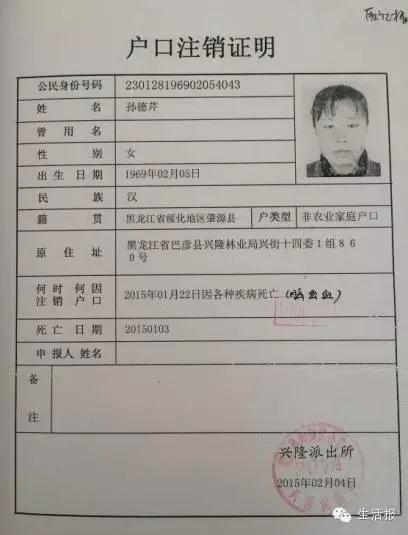 户口注销证明
公民身份号码 230128196902054043
姓名 孙德芹
曾用名
性别 女
出生日期 1969年02月05日
民族 汉
籍贯 黑龙江省绥化地区肇源县 户类型 非农业家庭户口
原住址 黑龙江省巴彦县兴隆林业局兴街十四委1组86
0号
何时何因
注销户口 2015年01月22日因各种疾病死亡 (脑出血)
死亡日期 20150103
申报人姓名
备
注
兴隆派出所
2015年02月04日
生活报